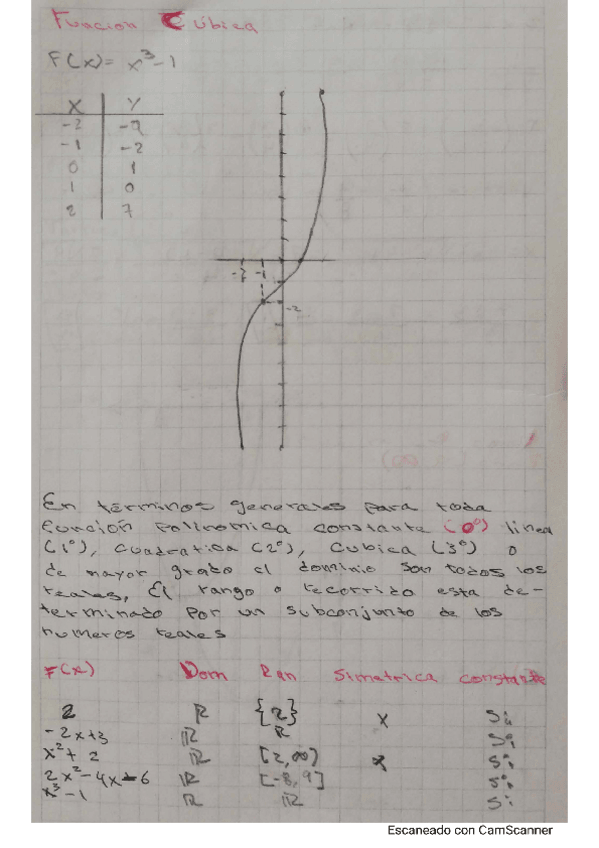 Funcion Cúbica
F(x)= x³-1
X Y
-2 -9
-1 -2
0 1
1 0
2 7
-2 -1
-2
En términos generales para toda
función polinomica constante (0°) linea
(1°), cuadratica (2°), cubica (3°) o
de mayor grado el dominio son todos los
reales, El rango o recorrido esta de-
terminado por un subconjunto de los
numeros reales
F(x) Dom Ran Simetrica constante
2 ℝ {2} x Si
-2x+3 ℝ ℝ Si
x²+2 ℝ [2,∞) x Si
2x²-4x-6 ℝ [-8, Si
x³-1 ℝ ℝ Si
Escaneado con CamScanner